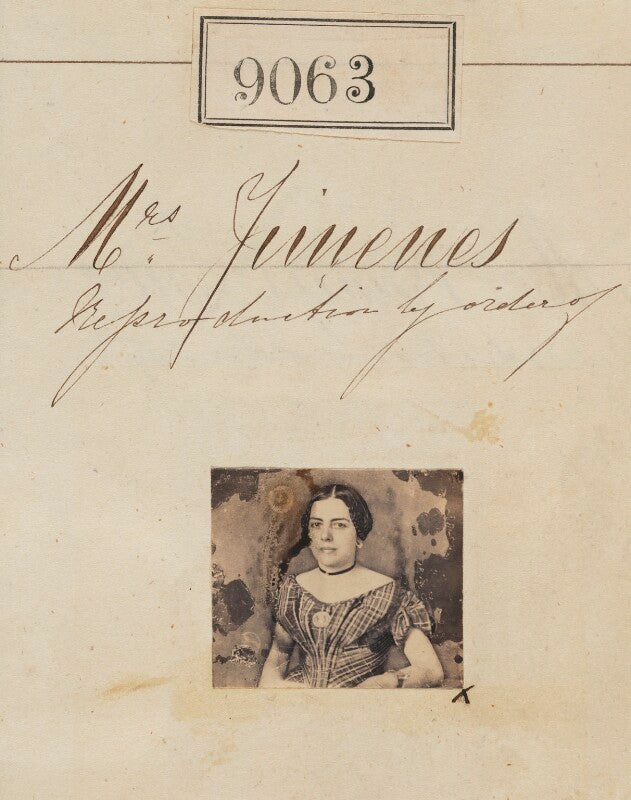 9063
Mrs Jimenes
Reproduction by order of
x